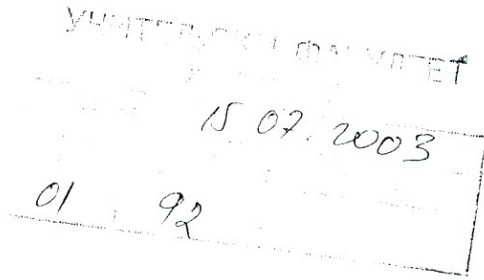 УЧИТЕЉСКИ ФАКУЛТЕТ
15 07. 2003
01 92